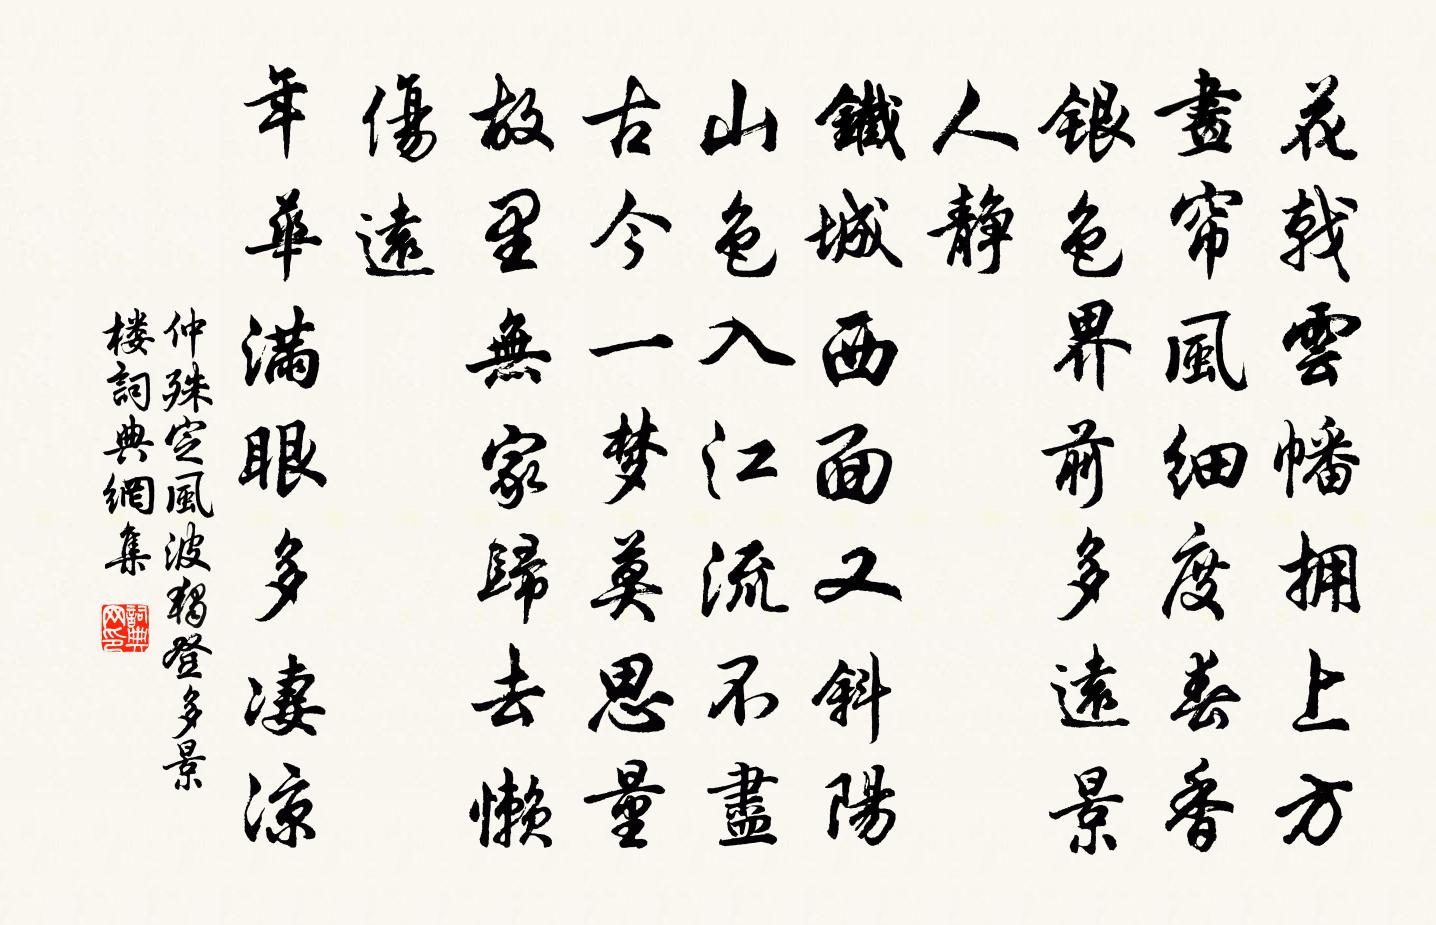 花戟雲幡拥上方
畫帘風細度春香
銀色界前多遠景
人静
鐵城西面又斜陽
山色入江流不盡
古今一梦莫思量
故里無家歸去懶
傷遠
年華滿眼多凄凉
仲殊定風波獨登多景
楼詞典網集
詞典
网印